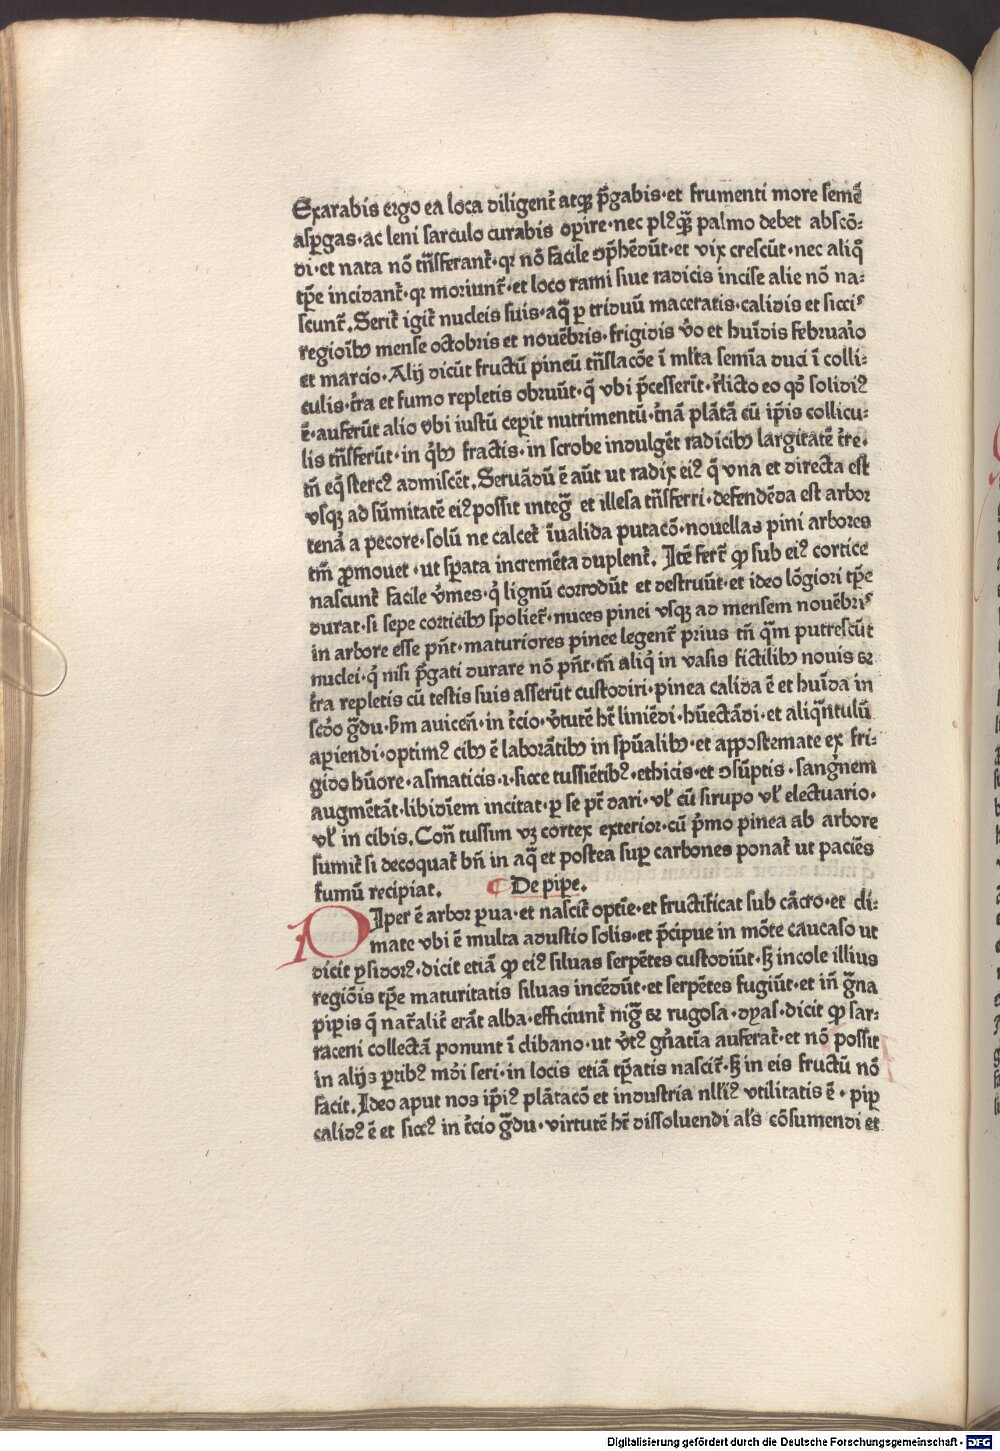 Exarabis ergo ea loca diligent̃ atqꝫ p̃gabis·et frumenti more semē
asꝑgas·ac leni sarculo curabis oꝑire·nec plꝰqꝫ̃ palmo debet abscō:
di·et nata nō trãsferant᷑·qꝛ nō facile ꝯp̃hēdūt·et vix crescūt·nec aliq̃
tꝑe incidant᷑·qꝛ moriunt᷑·et loco rami siue radicis incise alie nō na:
scunt᷑. Serit᷑ igit᷑ nucleis suis·aq̃ ꝑ triduū maceratis·calidis et siccis
regioībꝫ mense octobris et nouēbris·frigidis v̊o et hūidis februaꝛio
et marcio. Alij dicūt fructū pineū trãslacōe ī ml̃ta semīa duci ī colli:
culis·t̃ra et fumo repletis obruūt·q̃ vbi p̃cesserīt·r̃licto eo qd̉ solidiꝰ
ē·auferūt alio vbi iustū cepit nutrimentū·t̃nã plãtã cū ip̃is collicu:
lis trãsferūt·in qͥbꝫ fractis·in scrobe indulgēt radicibꝫ largitatē t̃re·
tñ eqͥ stercꝰ admiscēt. Seruãdū ē aūt ut radix eiꝰ q̃ vna et directa est
vsqꝫ ad sūmitatē eiꝰ possit integͣ et illesa trãsferri·defendēda est arbor
tenã a pecore·solū ne calcet᷑ īualida putacō·nouellas pini arbores
tm̃ ꝓmouet·ut sꝑata incremēta duplent᷑. Itē fert᷑ ꝙ sub eiꝰ cortice
nascunt᷑ facile v̉mes·qͥ lignū corrodūt et destruūt·et ideo lōgiori tꝑe
durat·si sepe corticibꝫ spoliet᷑·nuces pinei vsqꝫ ad mensem nouēbris
in arbore esse pñt·maturiores pinee legent᷑ prius tñ qͣm putrescūt
nuclei·qͥ nisi p̃gati durare nō pñt·tñ aliqͥ in vasis fictilibꝫ nouis ⁊
t̃ra repletis cū testis suis asserūt custodiri·pinea calida ē et hūida in
scd̉o gͣdu·ẜm auiceñ·in t̃cio·v̉tutē hꝫ liniēdi·hūectãdi·et aliqͣntulū
aꝑiendi·optimꝰ cibꝫ ē laborãtibꝫ in spūalibꝫ·et appostemate ex fri:
gido hūore·asmaticis·ı·sicce tussiētibꝰ·ethicis·et ꝯsūptis·sangͥnem
augmētãt·libidinem incitat·ꝑ se pt̃ dari·vl̉ cū sirupo vl̉ electuario·
vl̉ in cibis. Coñ tussim vꝫ cortex exterior·cū pͥmo pinea ab arbore
sumit᷑ si decoquat᷑ bñ in aq̃ et postea suꝑ carbones ponat᷑ ut paciēs
fumū recipiat.      De piꝑe.
Piper ē arbor ꝑua·et nascit᷑ optīe·et fructificat sub cãcro·et cli:
mate vbi ē multa adustio solis·et p̃cipue in mōte caucaso ut
dicit ysidorꝰ·dicit etiã ꝙ eiꝰ siluas serpētes custodiūt·sꝫ incole illius
regiōis tꝑe maturitatis siluas incēdūt·et serpētes fugiūt·et iñ gͣna
piꝑis q̃ nat̉alit̉ erãt alba·efficiunt᷑ nigͣ ⁊ rugosa·dyas·dicit ꝙ sar:
raceni collectã ponunt ī clibano·ut v̉tꝰ gñatiã auferat᷑·et nō possit
in alijs ꝑtibꝰ mōi seri·in locis etiã tꝑatis nascit᷑·sꝫ in eis fructū nō
facit. Ideo aput nos ip̃iꝰ plãtacō et industria nlliꝰ vtilitatis ē·piꝑ
calidꝰ ē et siccꝰ in t̃cio gͣdu·virtutē hꝫ dissoluendi al̉s cōsumendi et
Digitalisierung gefördert durch die Deutsche Forschungsgemeinschaft - DFG